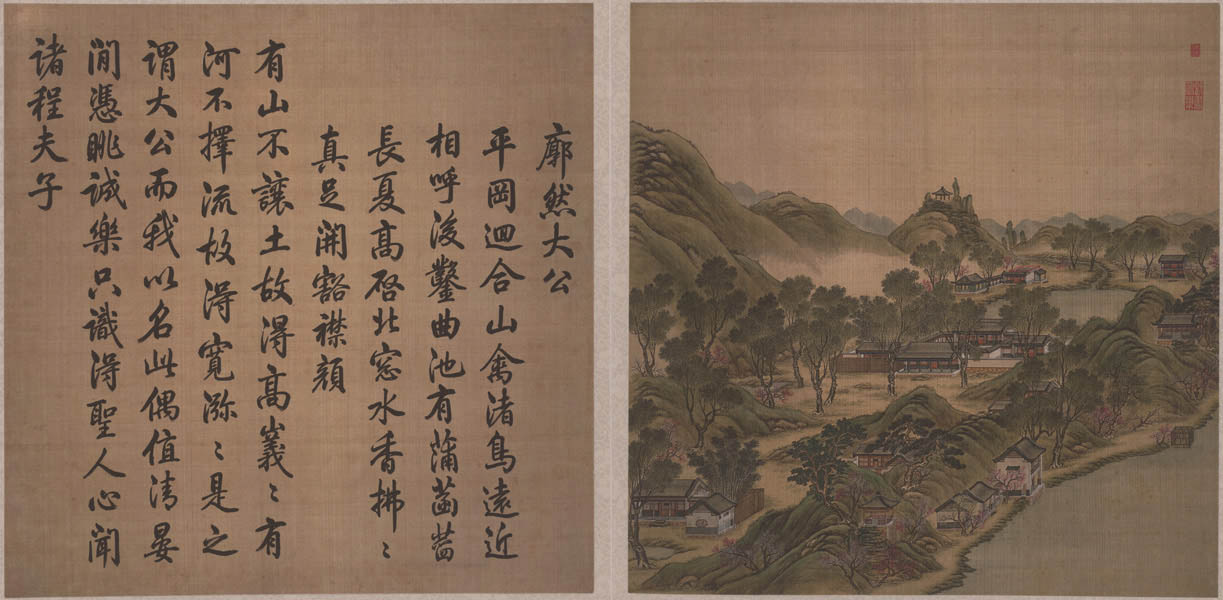 廓然大公
平岡迴合山禽渚鳥遠近
相呼後鑿曲池有蒲菡萏
長夏高啓北窓水香拂〻
真足開豁襟顏
有山不讓土故得高嶬〻有
河不擇流故得寬渳〻是之
謂大公而我以名此偶值清晏
閒憑眺誠樂只識得聖人心聞
諸程夫子